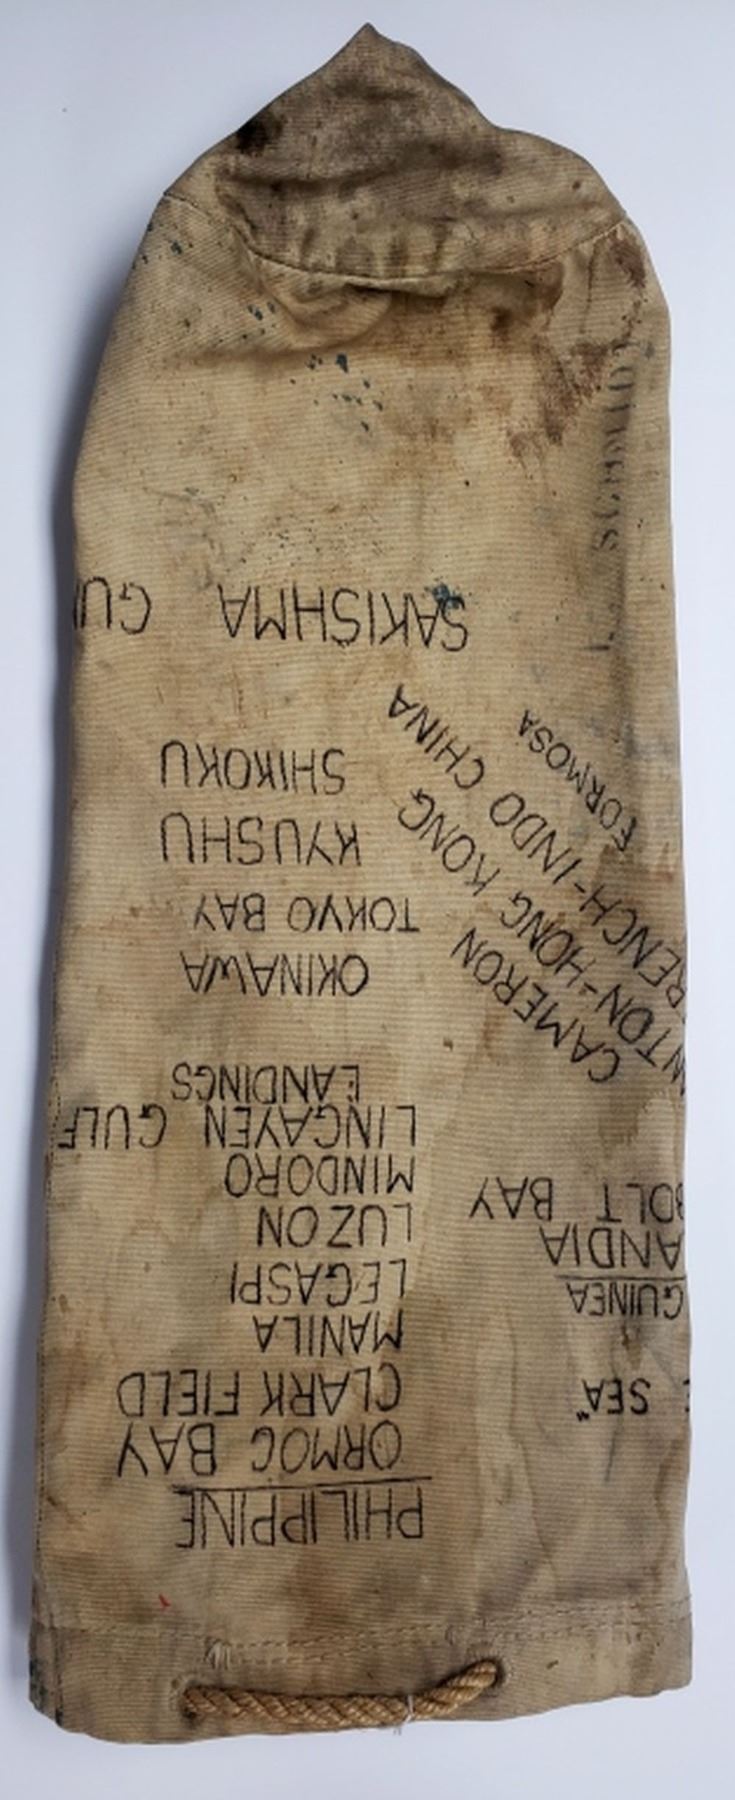 PHILIPPINE
ORMOC BAY
CLARK FIELD
MANILA
LEGASPI
LUZON
MINDORO
LINGAYEN GULF
LANDINGS
OKINAWA
TOKYO BAY
KYUSHU
SHIKOKU
SAKISHMA GU
SEA"
GUINEA
ANDIA
BOLT BAY
CAMERON
NTON-HONG KONG
RENCH-INDO CHINA
FORMOSA